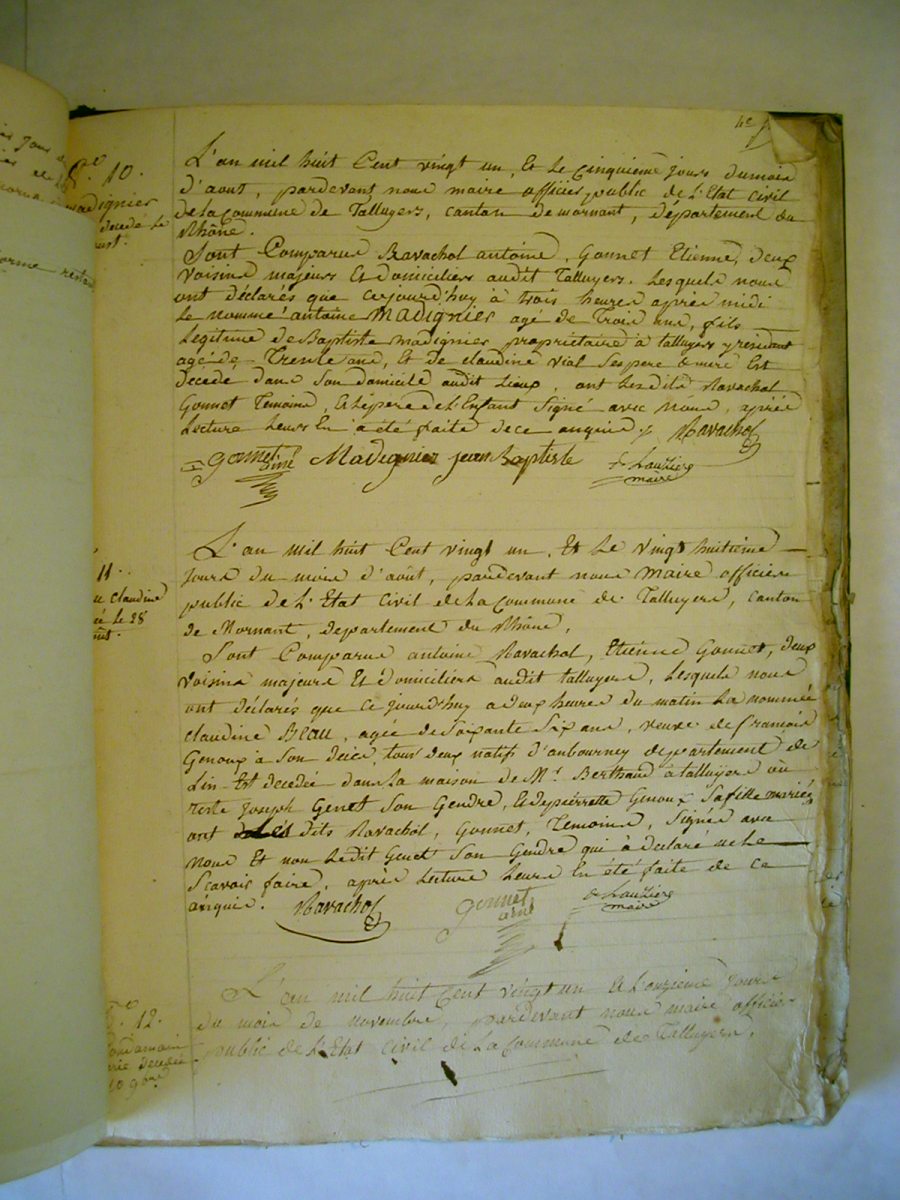 42
N.o 10.
Madignier
decedé le
L'an mil huit Cent vingt un, Et Le Cinquieme jours du mois
d'aout, pardevant nous maire officier public de L'Etat Civil
de La Commune de Talluyers, canton de mornant, département du
Rhône.
Sont Comparus Ravachol antoine, Gonnet Etienne, deux
voisins majeurs Et domiciliers audit Talluyers. Lesquels nous
ont déclarés que cejourd'huy à trois heures après midi
Le nommé antoine Madignier agé de Trois ans, fils
Legitime de Baptiste madignier propriétaire à talluyers y residant
agé de Trente ans, Et de claudine vial Ses pere & mere Est
decede dans Son domicile audit Lieux, ont Lesdits Ravachol
Gonnet Temoins, & Le pere de L'Enfant Signé avec Nous, après
Lecture Leurs En a été faite de ce anquis. Ravachol
Gonnet ainé Madignier jean Baptiste Lauzière
maire
11.
claudine
le 28
L'an mil huit Cent vingt un, Et Le vingt huitième
jours du mois d'août, pardevant nous Maire officiers
public de L'Etat Civil de La Commune de Talluyers, canton
de Mornant, departement du Rhône.
Sont Comparus antoine Ravachol, Etienne Gonnet, deux
voisins majeurs Et domiciliers audit talluyers, Lesquels nous
ont déclarés que ce jourd'huy a deux heures du matin La nommée
claudine Beau, agée de Soixante Six ans, veuve de francois
Genoux à Son deces, tous deux natifs d'aubourney departement de
Lin Est decedée dans La maison de Mr. Berthaud à talluyers où
reste joseph Genet Son Gendre, & de pierrette Genoux Sa fille mariés
ont dits Ravachol, Gonnet, Temoins, Signés avec
Nous Et non Ledit Genet Son Gendre qui à declaré ne Le
Scavoir faire, après Lecture Leurs En été faite de ce
anquis. Ravachol Gonnet ainé Lauzière
maire
N.o 12.
decedée
L'an mil huit Cent vingt un & L'onzieme jours
du mois de novembre, pardevant nous maire officier
public de L'Etat Civil de La Commune de Talluyers,